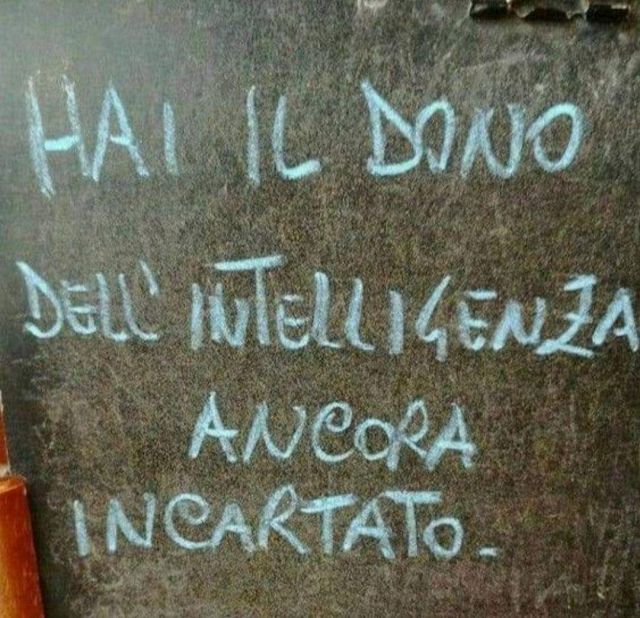 HAI IL DONO
DELL'INTELLIGENZA
ANCORA
INCARTATO.